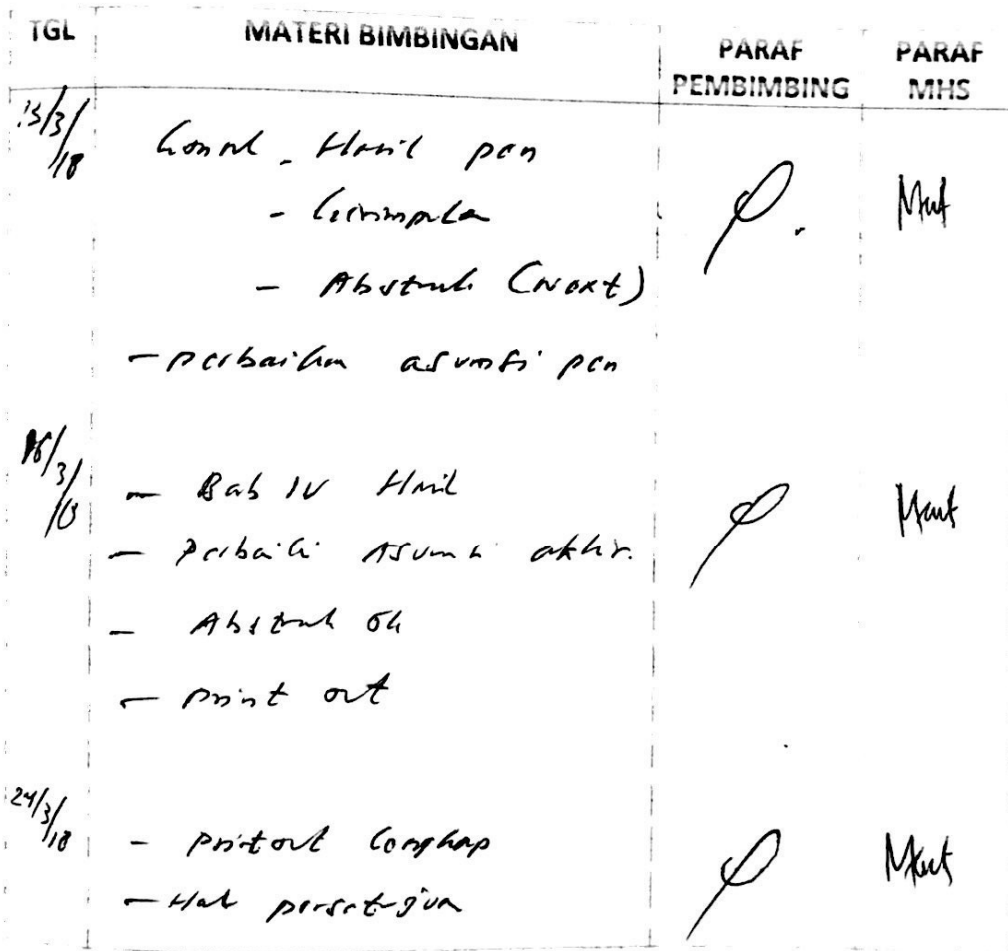 TGL MATERI BIMBINGAN PARAF PEMBIMBING PARAF MHS
15/3/18 - Hasil pen
- Kesimpulan
- Abstrak (Next)
- perbaikan asumsi pen
16/3/18 - Bab IV Hasil
- Perbaiki Asumsi akhir.
- Abstrak Ok
- print out
24/3/18 - printout Lengkap
- Hal persetujuan